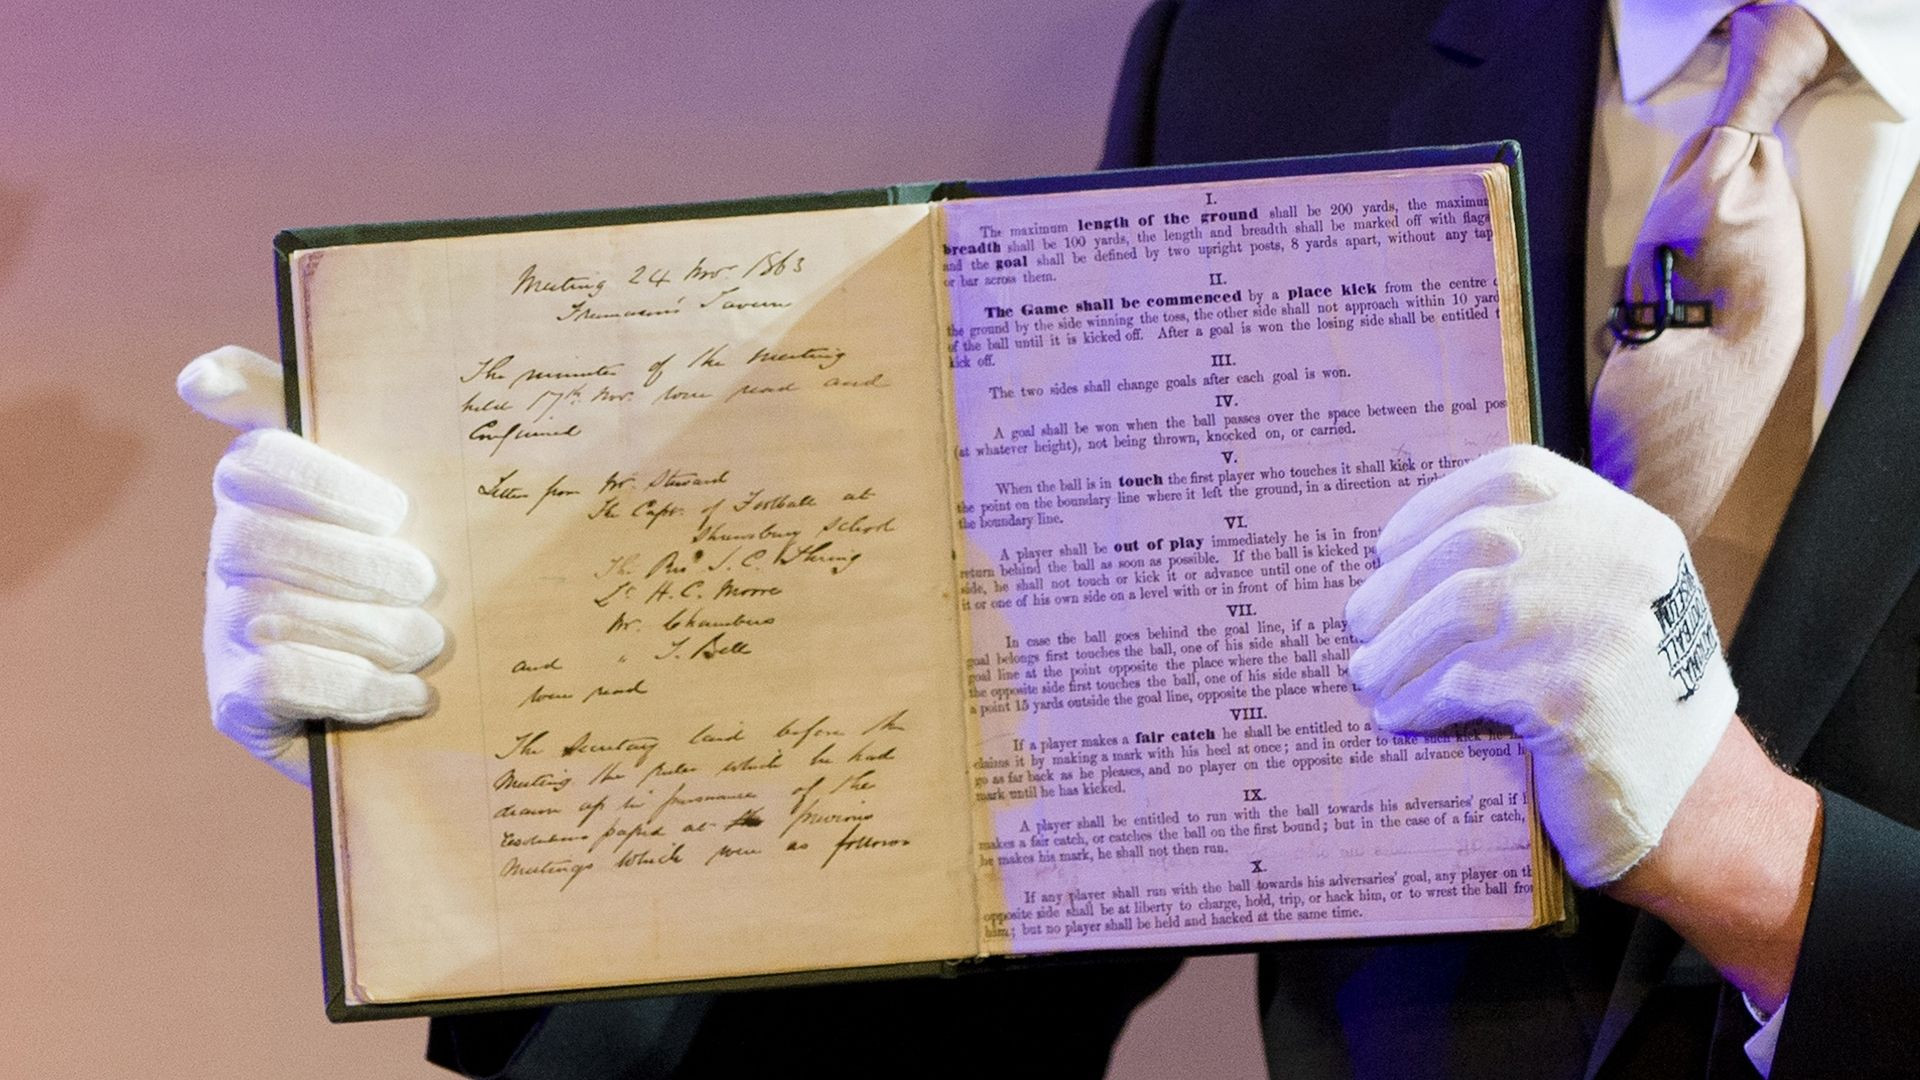 Meeting 24 Nov. 1863
Freemason's Tavern
The minutes of the meeting
held 17th Nov. were read and
Confirmed
Letters from Mr. Steward
The Capt. of Football at
Shrewsbury School
The Rev. J. C. Thring
Lt H. C. Moore
Mr. Chambers
and " J. Bell
were read
The Secretary laid before the
Meeting the rules which he had
drawn up in pursuance of the
resolutions passed at the previous
Meetings which were as follows
I.
The maximum length of the ground shall be 200 yards, the maximum
breadth shall be 100 yards, the length and breadth shall be marked off with flags
and the goal shall be defined by two upright posts, 8 yards apart, without any tap
or bar across them.
II.
The Game shall be commenced by a place kick from the centre
the ground by the side winning the toss, the other side shall not approach within 10 yard
of the ball until it is kicked off. After a goal is won the losing side shall be entitled
kick off.
III.
The two sides shall change goals after each goal is won.
IV.
A goal shall be won when the ball passes over the space between the goal pos
(at whatever height), not being thrown, knocked on, or carried.
V.
When the ball is in touch the first player who touches it shall kick or throw
the point on the boundary line where it left the ground, in a direction at rig
the boundary line.
VI.
A player shall be out of play immediately he is in fron
return behind the ball as soon as possible. If the ball is kicked p
side, he shall not touch or kick it or advance until one of the ot
it or one of his own side on a level with or in front of him has be
VII.
In case the ball goes behind the goal line, if a play
goal belongs first touches the ball, one of his side shall be ent
goal line at the point opposite the place where the ball shall
the opposite side first touches the ball, one of his side shall b
a point 15 yards outside the goal line, opposite the place where
VIII.
If a player makes a fair catch he shall be entitled to a
claims it by making a mark with his heel at once; and in order to take such kick he
go as far back as he pleases, and no player on the opposite side shall advance beyond h
mark until he has kicked.
IX.
A player shall be entitled to run with the ball towards his adversaries' goal if
makes a fair catch, or catches the ball on the first bound; but in the case of a fair catch,
he makes his mark, he shall not then run.
X.
If any player shall run with the ball towards his adversaries' goal, any player on th
opposite side shall be at liberty to charge, hold, trip, or hack him, or to wrest the ball fro
him; but no player shall be held and hacked at the same time.
NATIONAL
FOOTBALL
MUSEUM